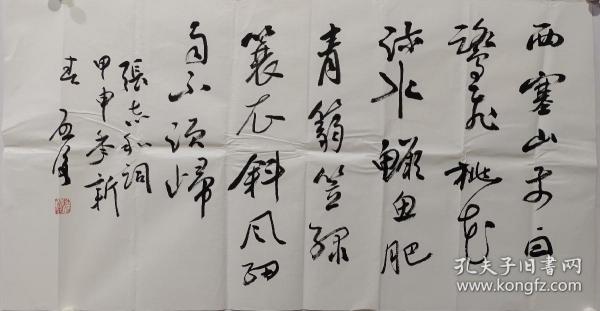 西塞山前白
鹭飞桃花
流水鳜鱼肥
青箬笠绿
蓑衣斜风细
雨不须归
張志和詞
甲申年新
春
孔夫子旧书网
www.kongfz.com